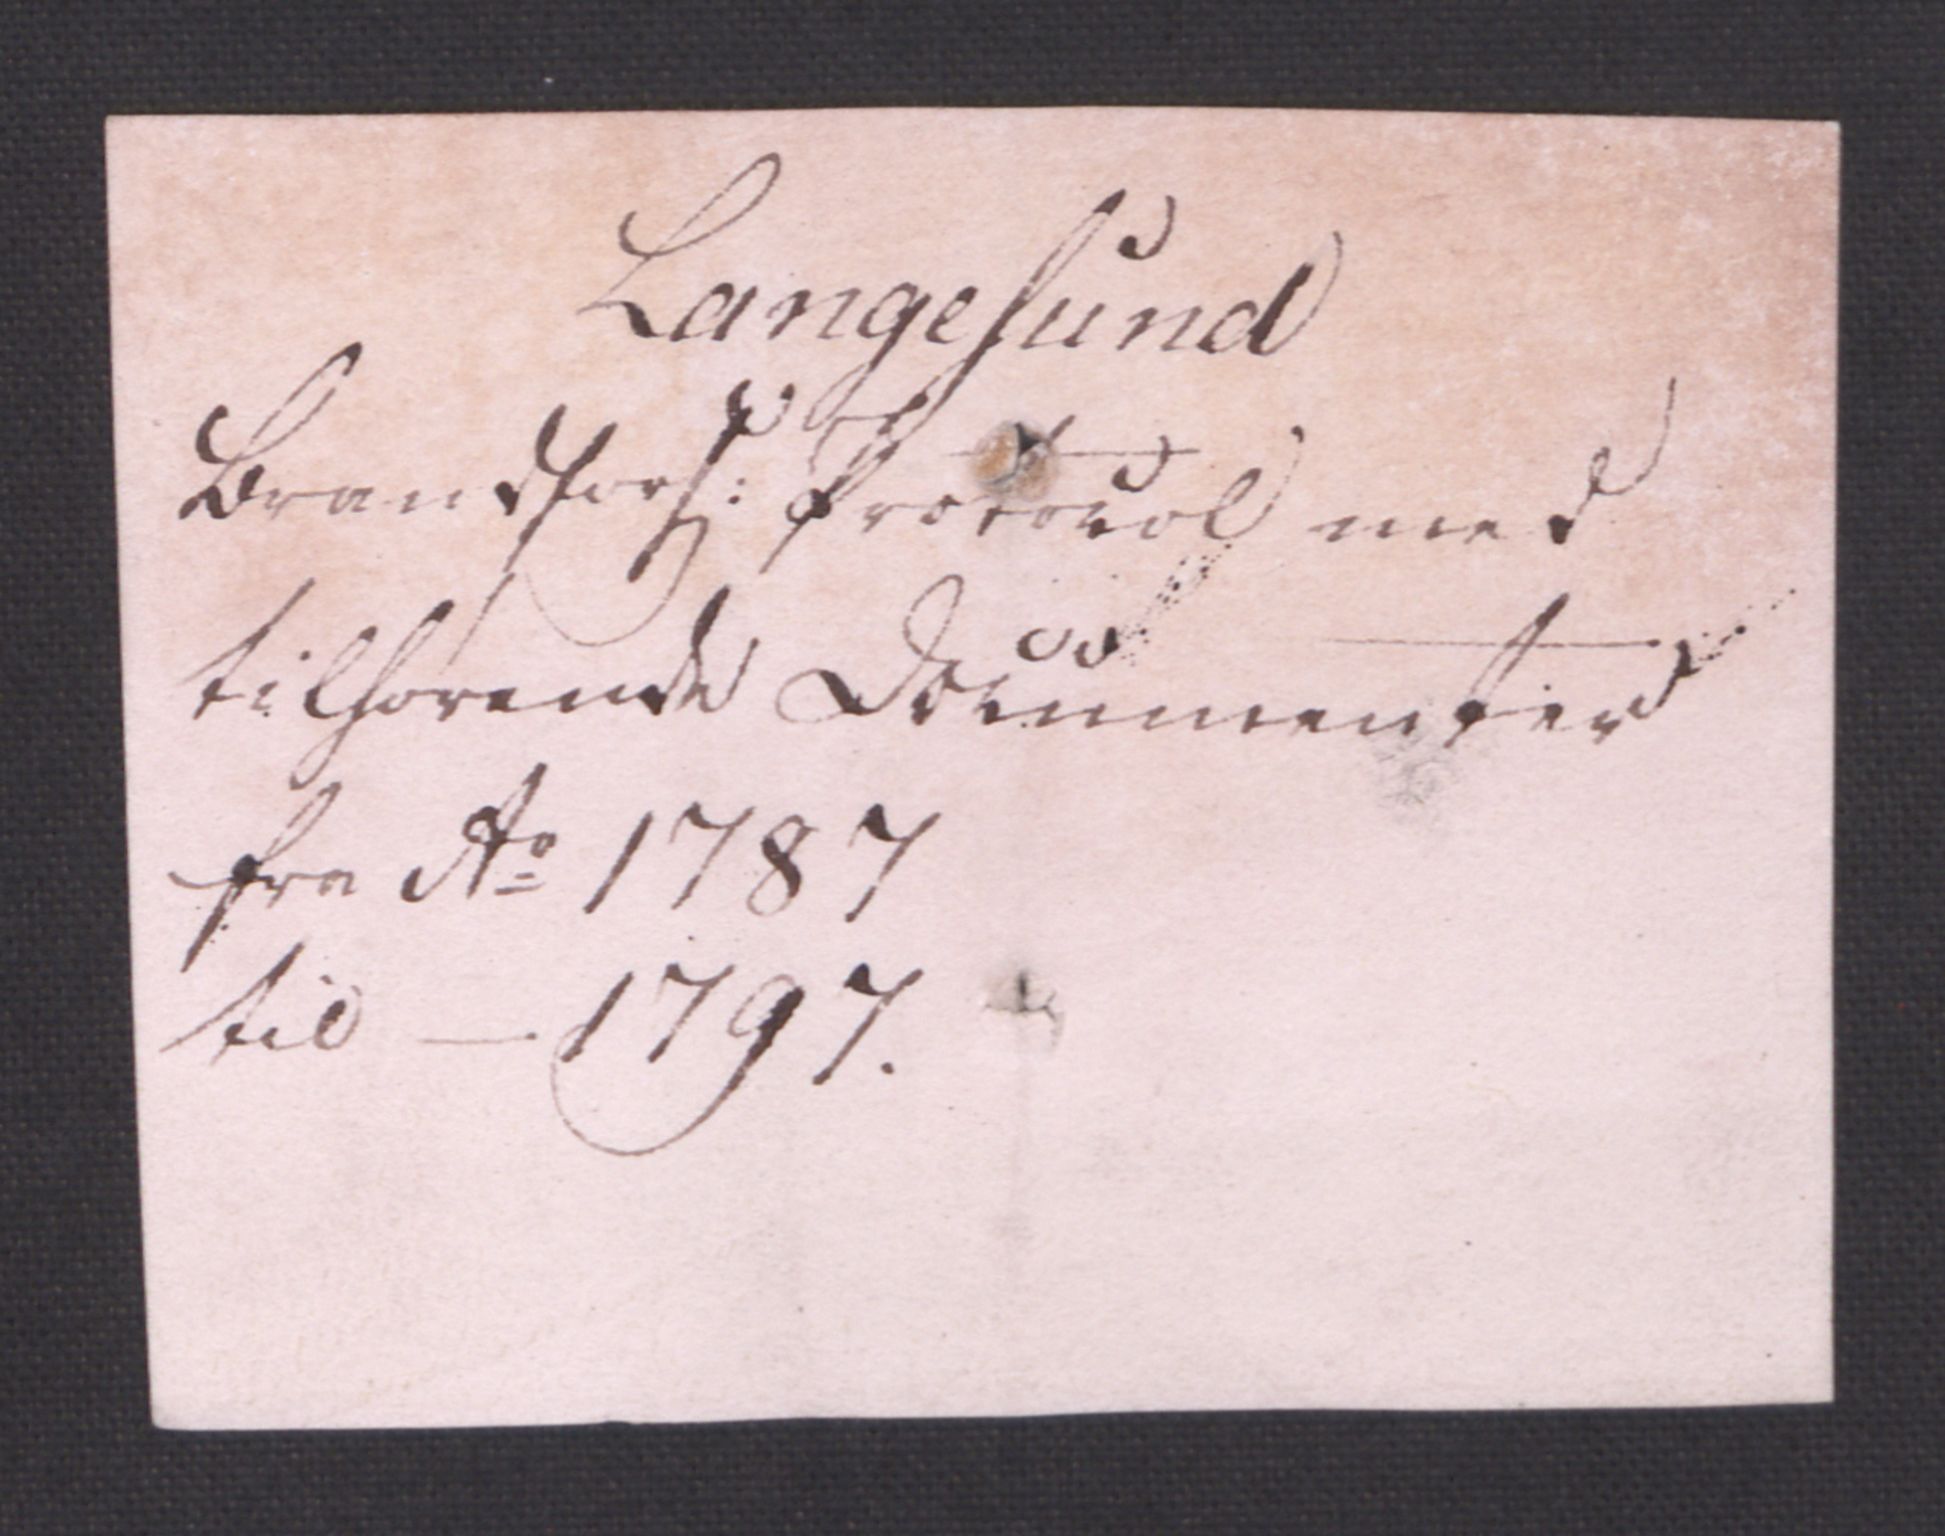 Langesund
Brandfors: Protocol med
tilhørende Documenter
fra Ao 1787
til — 1797.